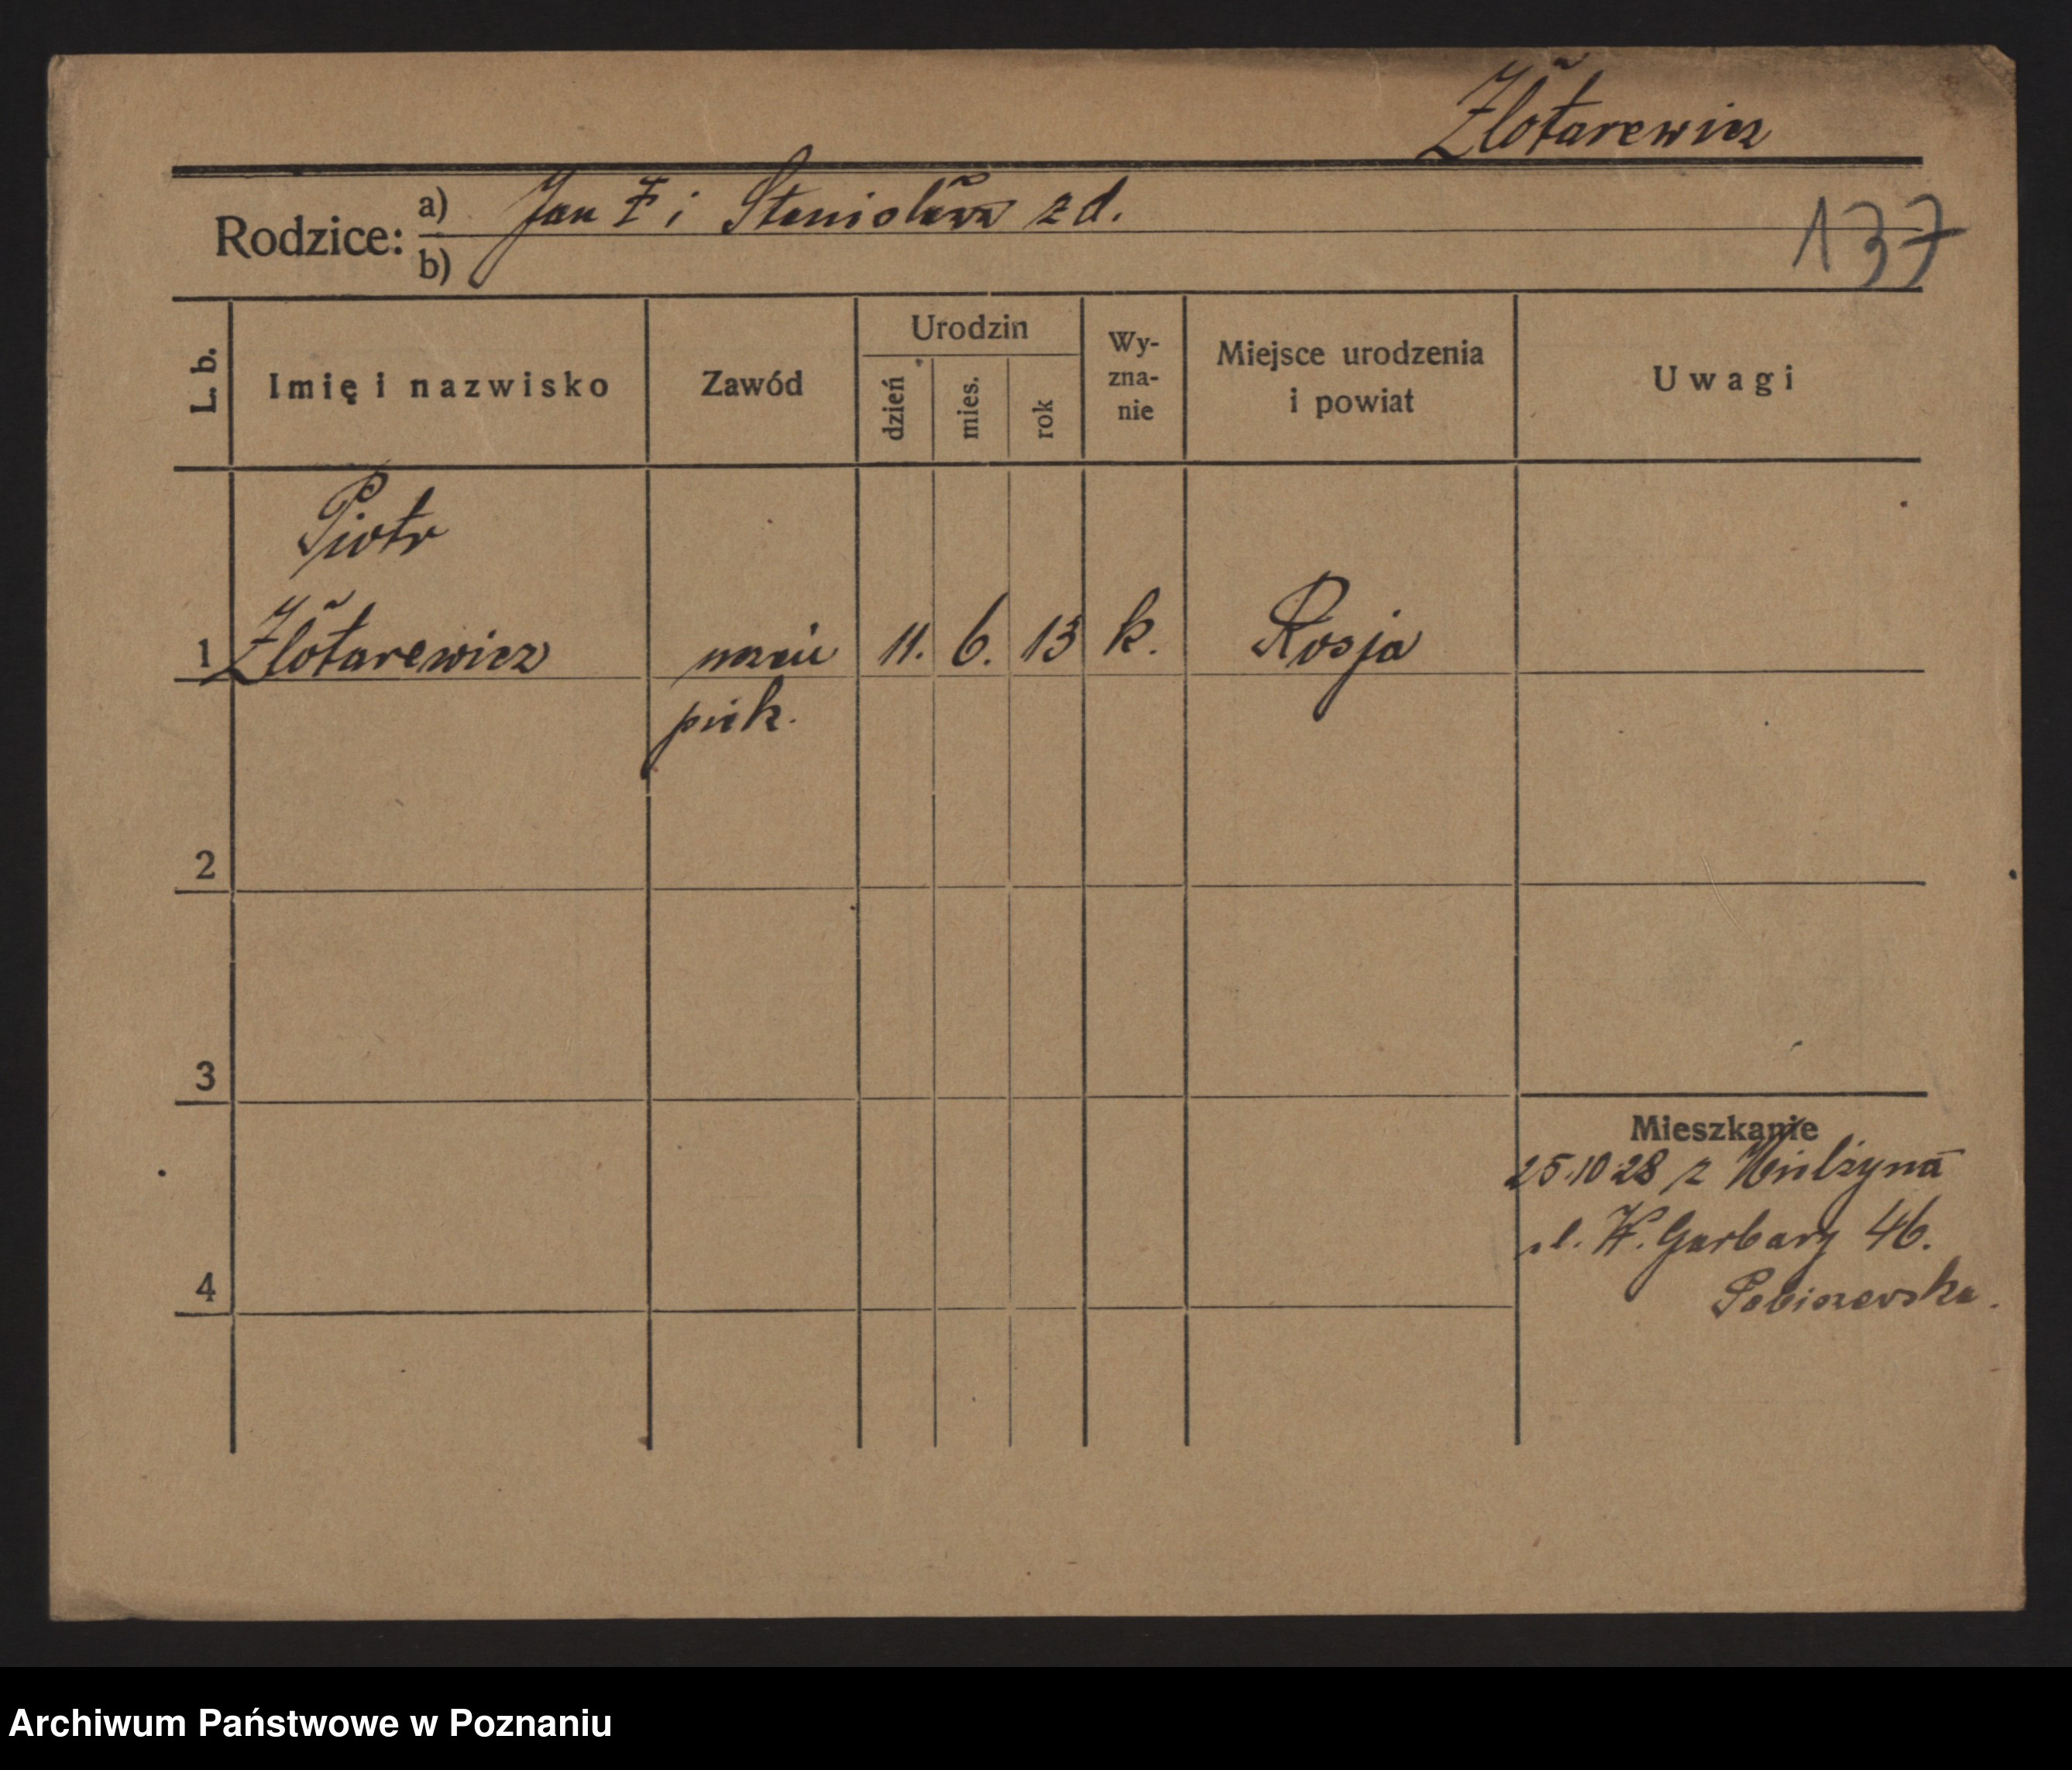 Złotarewicz
Rodzice: a) Jan Z i Stanisława z d.
b)
137
L. b.
Imię i nazwisko
Zawód
Urodzin
dzień
mies.
rok
Wy-
zna-
nie
Miejsce urodzenia
i powiat
Uwagi
Piotr
1 Złotarewicz uczeń 11. 6. 13 k. Rosja
piek.
2
3
4
Mieszkanie
25.10.28 z
ul. W. Garbary 46.
Archiwum Państwowe w Poznaniu